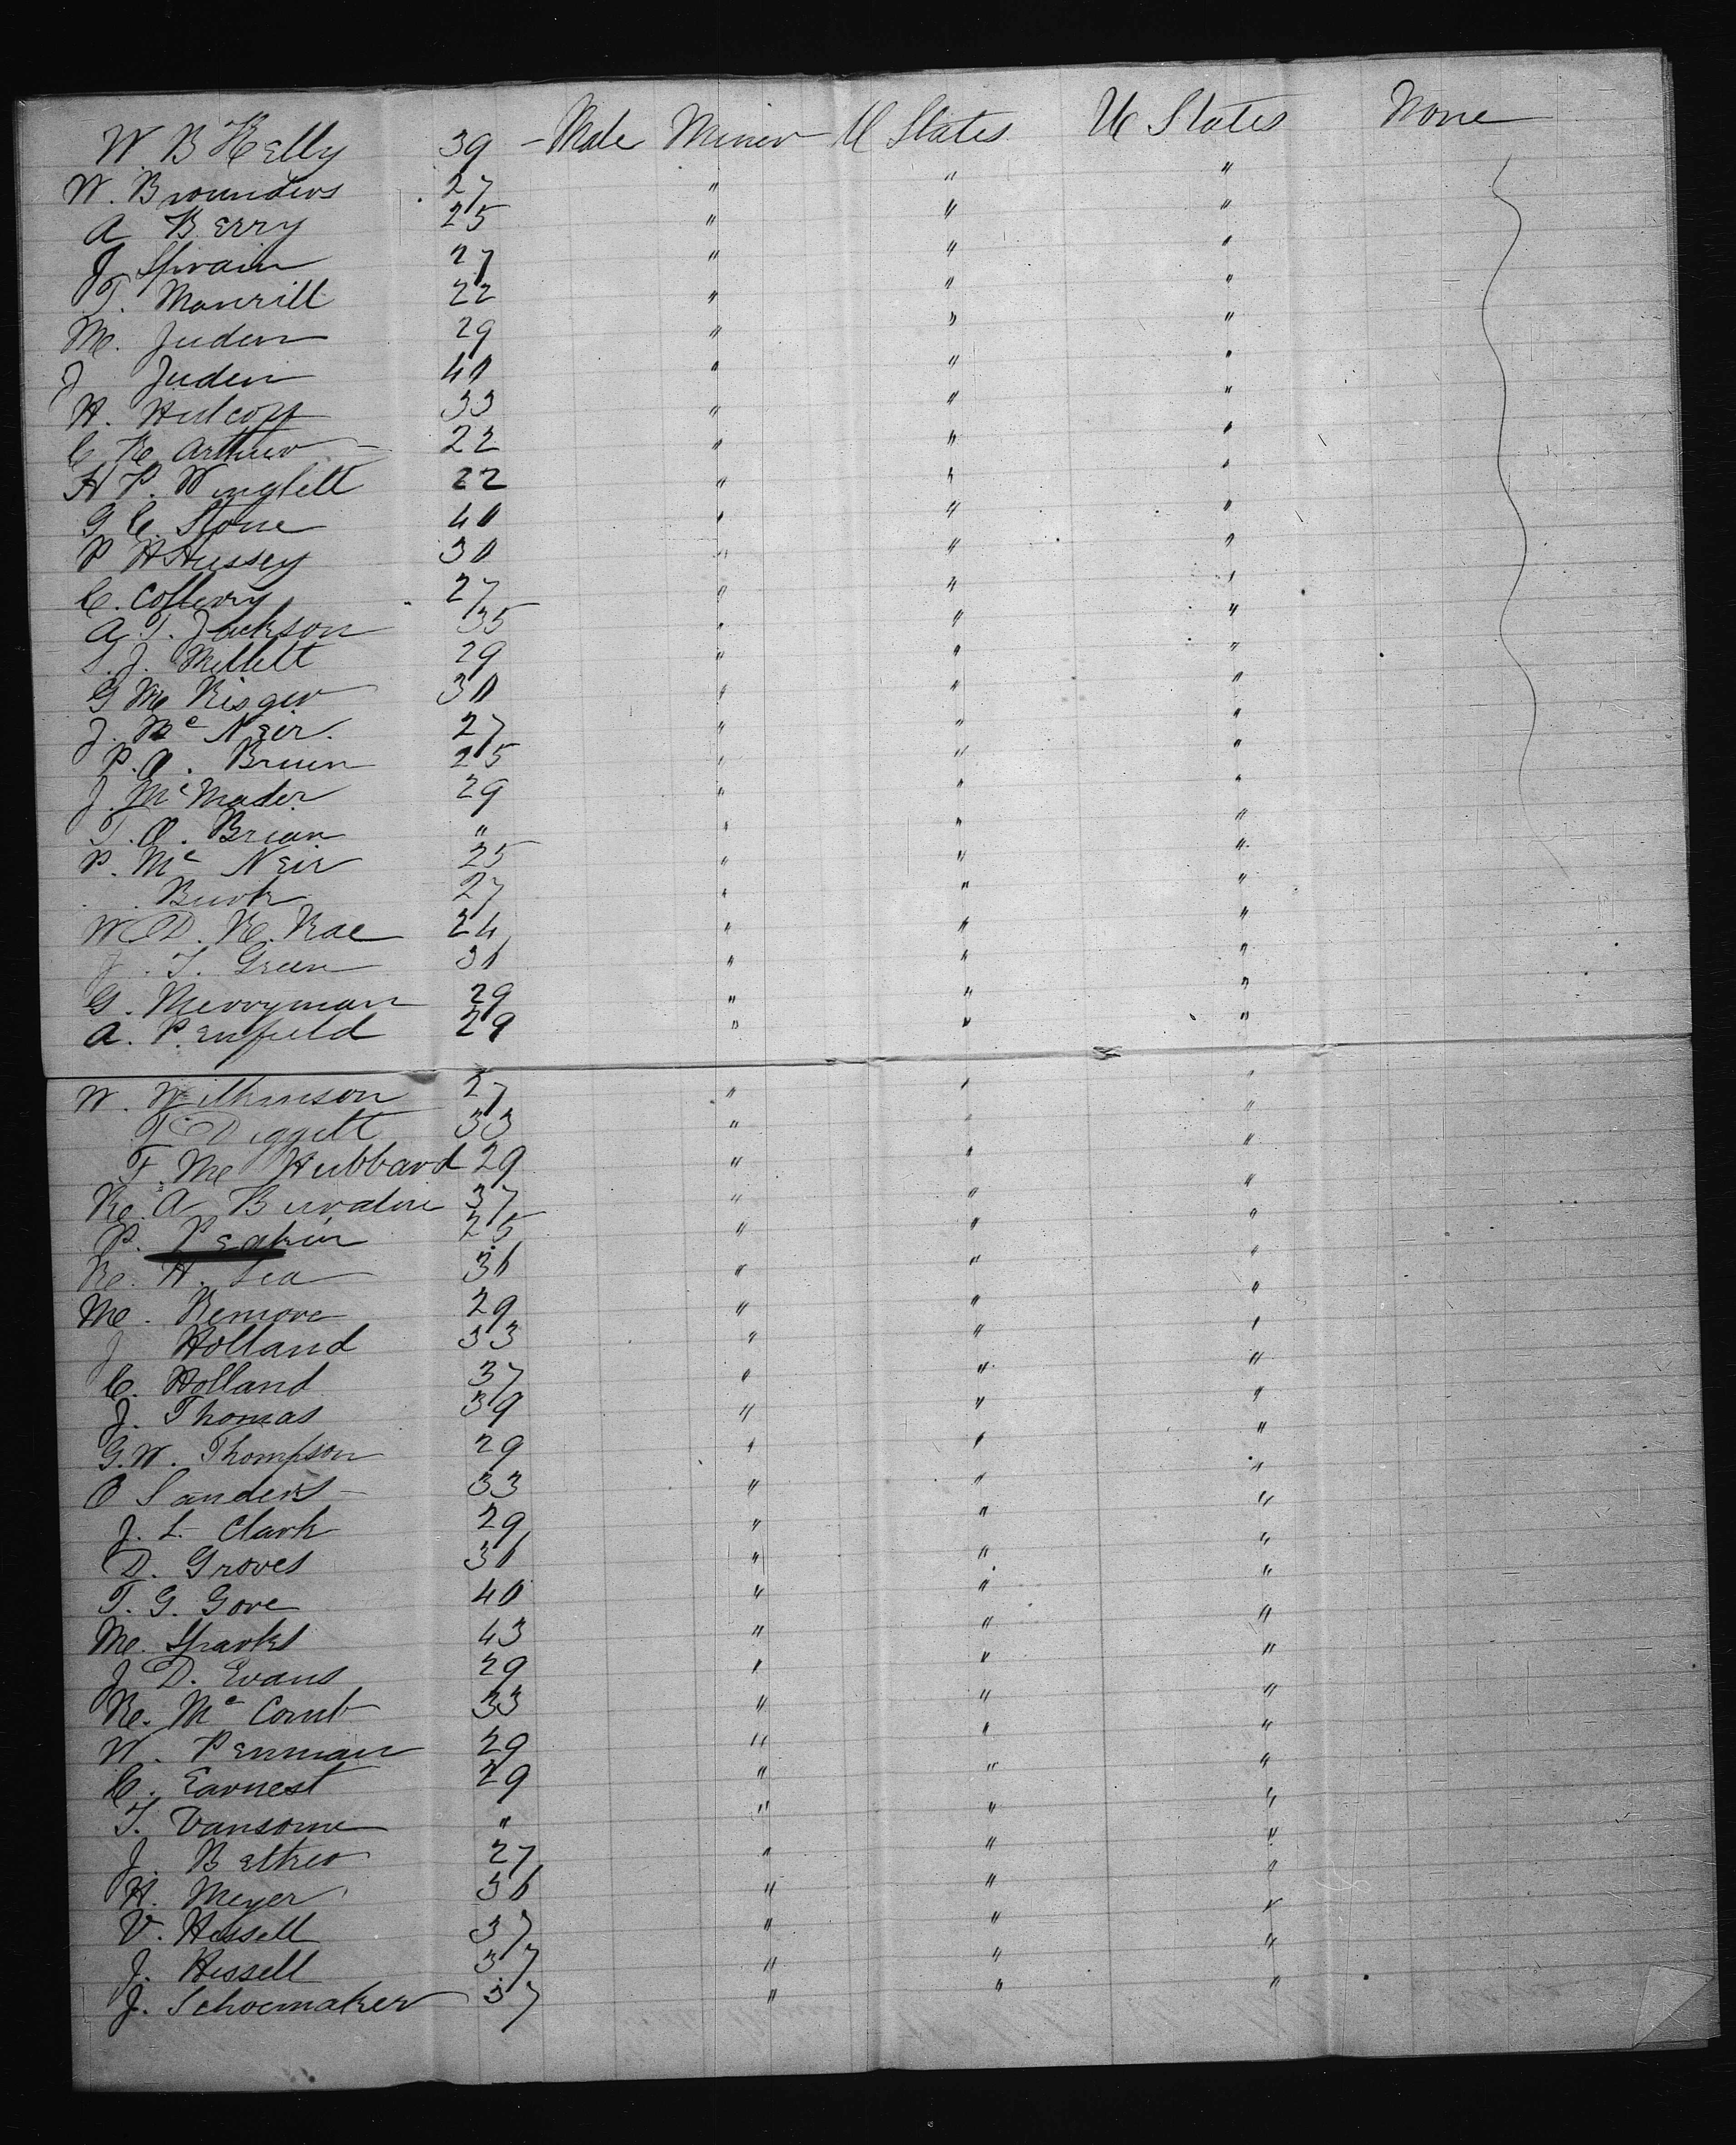 W. B Kelly 39 - Male Miner U States U States None
W. Brounders 27 " " "
A Berry 25 " " "
J Sprain 27 " " "
T. Manrill 22 " " "
M. Juden 29 " " "
J Juden 40 " " "
H. 33 " " "
C R Arthur 22 " " "
H P. Winglett 22 " " "
G C. Stone 40 " " "
P H Hussey 30 " " "
C. Coffery 27 " " "
A T. Jackson 35 " " "
S. J. Millett 29 " " "
G M Risger 30 " " "
J. Mc Neir. 27 " " "
P. O. Brien 25 " " "
J. Mc Mader 29 " " "
T. O. Brian " " " "
P. Mc Neir 25 " " "
Burk 27 " " "
W. D. R. Rae 24 " " "
J. T. Green 30 " " "
G. Merryman 29 " " "
A. Penfield 29 " " "
W. Wilkinson 27 " " "
T. Diggett 33 " " "
F. M Hubbard 29 " " "
R. A 37 " " "
P. Peakin 25 " " "
R. H. Lea 30 " " "
M. Remore 29 " " "
J Holland 33 " " "
C. Holland 37 " " "
J. Thomas 39 " " "
G. W. Thompson 29 " " "
O Sanders 33 " " "
J. L. Clark 29 " " "
D. Groves 30 " " "
T. G. Gore 40 " " "
M. Sparks 43 " " "
J D. Evans 29 " " "
R. Mc Comb 33 " " "
W. Penman 29 " " "
C. Earnest 29 " " "
T. Vansome " " " "
J. Bether 27 " " "
H. Meyer 30 " " "
V. Hessell 37 " " "
J. Hessell 37 " " "
J. Schoemaker 37 " " "